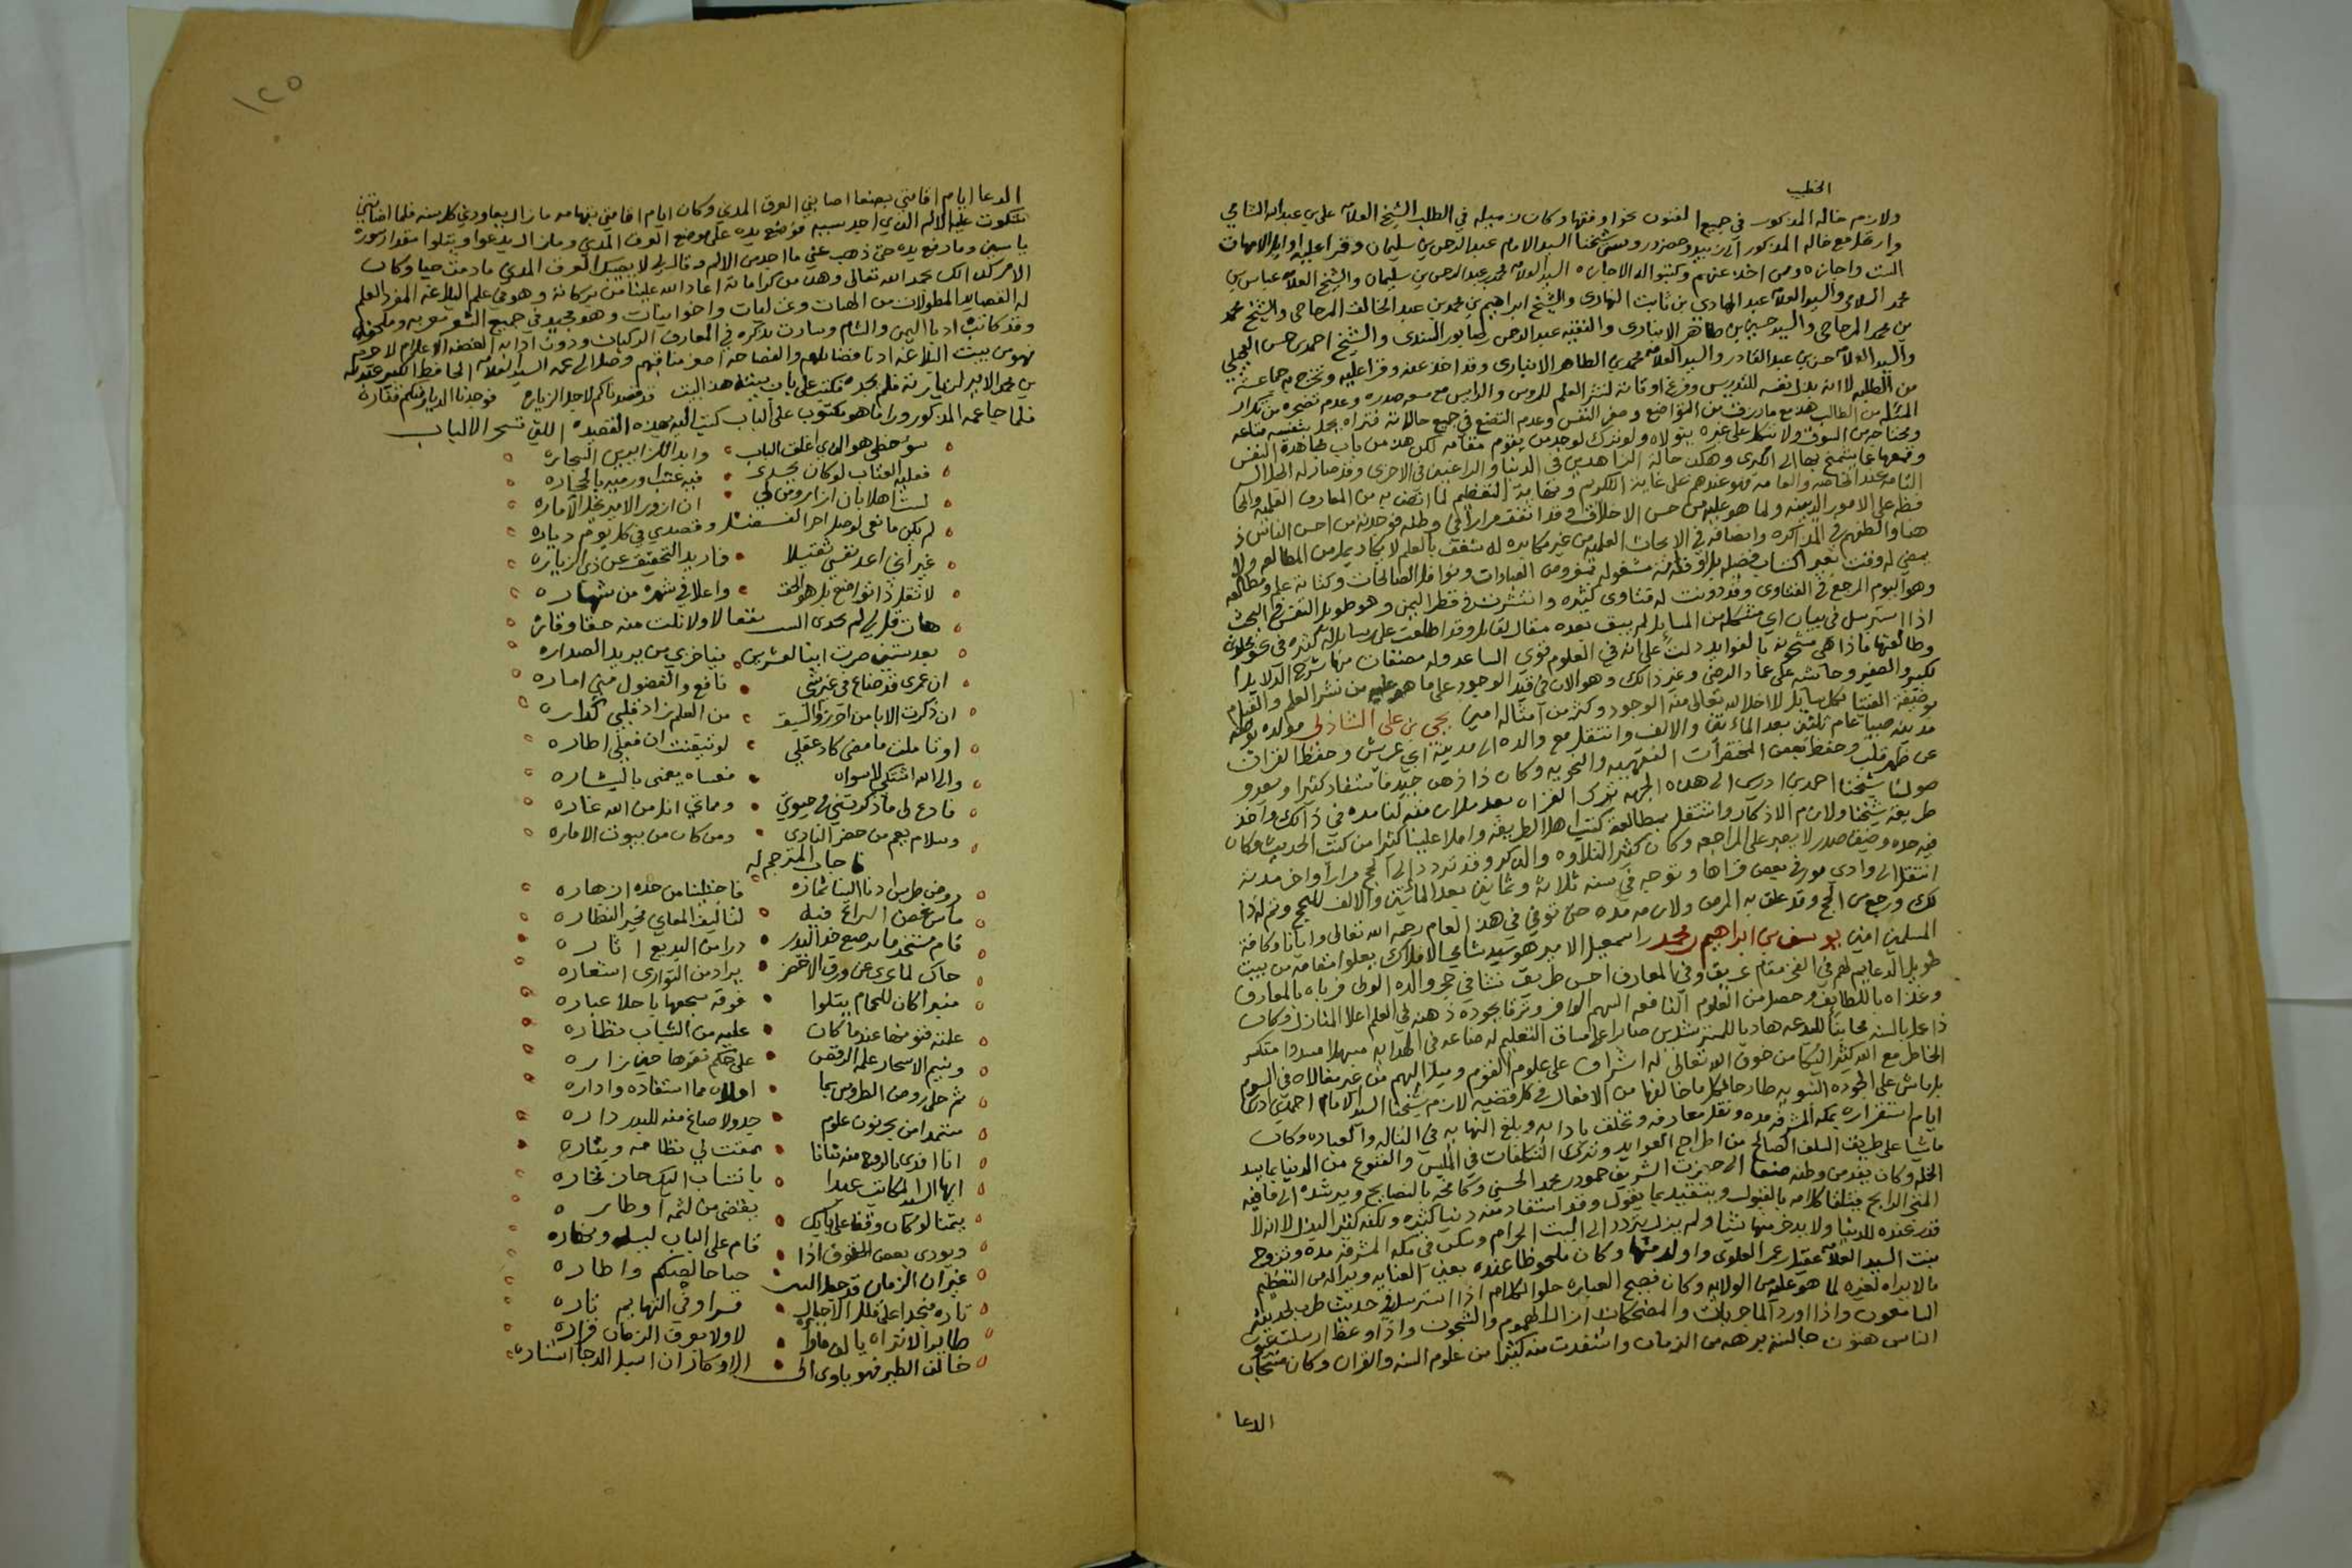 الخطيب
ولازم خاله المذكور في جميع الفنون نحوا وفقها وكان زميله في الطلب الشيخ العلامه علي بن عبد الله الشامي
وارتحل مع خاله المذكور الى زبيد وحضر دروس شيخنا السيد الامام عبد الرحمن بن سليمان وقرا عليه اوايل الامهات
الست واجازه وممن اخذ عنهم وكتبوا له الاجازه السيد العلامه محمد بن عبد الرحمن بن سليمان والشيخ العلامه عباس بن
محمد السلامي والسيد العلامه عبد الهادي بن ثابت النهاري والشيخ ابراهيم بن محمد بن عبد الخالق المزجاجي والشيخ محمد
بن محمد المزجاجي والسيد حسين بن طاهر الانباري والفقيه عبد الرحمن السندي والشيخ احمد بن حسن
والسيد العلامه حسن بن عبد القادر والسيد العلامه محمد بن الطاهر الانباري وقد اخذ عنه وقرا عليه وتخرج به جماعة
من الطلبه لانه بذل نفسه للتدريس وفرغ اوقاته لنشر العلم للدروس مع سعه صدره وعدم تضجره من تكرار
المشكل من الطالب هذا مع ما رزق من التواضع وهضم النفس وعدم التصنع في جميع حالاته فتراه يحمل بنفسه متاعه
وما يحتاجه من السوق ولا يتكل على غيره يتولاه ولو ترك لوجد من يقوم مقامه لكن هذا من باب مجاهدة النفس
وهكذا حالة الزاهدين في الدنيا والراغبين في الاخرى وقد صار له الجلال
التامه عند الخاصه والعامه فهو عندهم على غاية التكريم ونهاية التعظيم لما اتصف به من المعارف العلميه
فظه على الامور الدينيه ولما هو عليه من حسن الاخلاق وقد اتفقت مرارا في وطنه فوجدته من احسن الناس ذ
هنا والطفهم في المذاكره وانصافه في الابحاث العلميه من غير مكابره له شغف بالعلم لا يكاد يمل من المطالعه ولا
يمضي له وقت بغير اكتساب فضيله بل اوقاته مشغوله بتنوع من العبادات ونوافل الصالحات وكتابة علم ومطالعه
وهو اليوم المرجع في الفتاوى وقد دونت له فتاوى كثيره وانتشرت في قطر اليمن وهو طويل النفس في البحث
اذا استرسل في بيان اي مشكله من المسايل لم يبق بعده مقال لقايل وقد اطلعت على رسايل له كثيره
وطالعتها فاذا هي مشحونه بالفوايد دلت على انه في العلوم قوي الساعد وله مصنفات منها شرح
الكبير والصغير وحاشيه على عماد الرضى وغير ذالك وهو الان في قيد الوجود على ما هو عليه من نشر العلم والقيام
بوظيفة الفتيا فكل سايل لا اخلا الله تعالى منه الوجود وكثر من امثاله امين يحيى بن علي الشاذلي مولده بوطنه
مدينه صبيا عام ثلثين بعد المائتين والالف وانتقل مع والده الى مدينة ابي عريش وحفظ القران
عن ظهر قلب وحفظ بعض المختصرات الفقهيه والنحويه وكان ذا ذهن جيد فاستفاد كثيرا وبعد و
صول شيخنا احمد بن ادريس الى هذه الجهه
طريقة شيخنا ولازم الاذكار واشتغل بمطالعة كتب اهل الطريقه واملا علينا كثيرا من كتب الحديث وكان
فيه حده وضيق صدر لا يصبر على المراجعه وكان كثير التلاوه والذكر وقد تردد الى الحج مرارا واخر مدته
انتقل الى وادي مور في بعض قراها وتوجه في سنه ثلاثة وثمانين بعد المائتين والالف للحج وتم له ذا
لك ورجع من الحج وقد علق به المرض ولازمه مده حتى توفي في هذا العام رحمه الله تعالى وايانا وكافة
المسلمين امين يوسف بن ابراهيم بن محمد بن اسمعيل الامير هو سيد شامي الافلاك يعلو مقامه من بيت
طويل الدعايم لهم في الفخر مقام عريق وفي المعارف احسن طريق نشا في حجر والده الولي فرباه بالمعارف
وغذاه باللطايف وحصل من العلوم النافعه السهم الوافر وترقا بجودة ذهنه في العلم اعلا المنازل وكان
ذا عمل بالسنه مجانبا للبدعه هاديا للمسترشدين صابرا على مشاق التعليم
الخاطر مع الله كثير البكا من خوف الله تعالى له اشراف على علوم القوم وميل اليهم من غير مغالاه في الرسوم
بل ماش على الجوده السويه طارحا لكل ما خالفها من الافعال في كل قضيه لازم شيخنا السيد الامام احمد بن ادريس
ايام استقراره بمكه المشرفه مده ونقل معارفه وتخلق بادابه وبلغ النهايه في التاله والعباده وكان
ماشيا على طريق السلف الصالح من اطراح العوايد وترك التكلفات في الملبس والقنوع من الدنيا بما يبد
الخله وكان يفد من وطنه صنعا الى حضرت الشريف حمود بن محمد الحسني وكافحه بالنصايح ويرشده الى ما فيه
المتجر الرابح فيتلقا كلامه بالقبول ويتقيد بما يقول وقد استفاد منه دنيا كثيره ولكنه كثير البذل لانه لا
قدر عنده للدنيا ولا يدخر منها شيا ولم يزل يتردد الى البيت الحرام وسكن في مكه المشرفه مده وتزوج
بنت السيد العلامه عقيل بن عمر العلوي واولد منها وكان ملحوظا عنده بعين العنايه ويراله من التعظيم
ما لا يراه لغيره لما هو عليه من الولايه وكان فصيح العباره حلو الكلام اذا استرسل في حديث طرب لحديثه
السامعون واذا اورد الماجريات والمضحكات ازال الهموم والشجون واذا وعظ ارسلت عيون
الناس هتون جالسته برهه من الزمان واستفدت منه كثيرا من علوم السنه والقران وكان مستجاب
الدعا
١٢٥
الدعا ايام اقامتي بصنعا اصابني العرق المدني وكان ايام اقامتي بتهامه ما زال يعاودني كل سنه فلما اصابني
شكوت عليه الالم الذي اجد بسببه فوضع يده على موضع العرق المدني وما زال يدعو ويتلو مقدار سورة
ياسين وما رفع يده حتى ذهب عني ما اجد من الالم وقال لي لا يصيبك العرق المدني ما دمت حيا وكان
الامر كذالك بحمد الله تعالى وهذه من كراماته اعاد الله علينا من بركاته وهو في علم البلاغه المفرد العلم
له القصايد المطولات من الهيات وغزليات واخوانيات وهو مجيد في جميع الشعر
وقد كاتبه ادبا اليمن والشام وسارت بذكره في المعارف الركبان ودون ادابه الفضلا الاعلام لا جرم
فهو من بيت البلاغه ادنا فضايلهم والفصاحه اصغر مناقبهم وصل الى عمه السيد العلامه الحافظ الكبير عبد الله
بن محمد الامير لزيارته فلم يجده فكتب على باب بيته هذا البيت قد قصدناكم لاجل الزياره فوجدنا الديار منكم قفاره
فلما جا عمه المذكور ورا ما هو مكتوب على الباب كتب اليه بهذه القصيده اللتي تسحر الالباب
سو حظي هو الذي اغلق الباب وابدا لكرابسين النجاره
فعليه العتاب لو كان يجدي فيه عتب ورميه بالحجاره
لست اهلا بان ازار ومن لي ان ازور الامير نجل الاماره
لم يكن مانعي لوصل احر النفس وقصدي في كل يوم دياره
غير اني اعد نفسي ثقيلا فاريد التخفيف عن ذي الزياره
لا تقل ذا تواضع بل هو الحق واعلا في شهره من شهاره
هات قل لي لم يجدى السنفعا لا ولا نلت منه حقا وقاره
بعد ستين صرت ابنا لعشرين فيا خزي من يريد الصداره
ان عمري قد ضاع في غير شي نافع والفضول مني اماره
ان ذكرت الايا من احرز السبق من العلم زاد قلبي
او تاملت ما مضى كاد عقلي لو تيقنت ان فعلي اطاره
والى الله اشتكي لا سواه فعساه يمحى بالبشاره
فادع لي ما ذكرتني في حيوتي ومماتي انل من الله غاره
وسلام يعم من حضر النادي ومن كان من بيوت الاماره
فاجاب المترجم له
روض طرس ادنا الينا ثماره فاجتلينا من حده ازهاره
ماس غصن اليراع فيه لتاليف المعاني فحير النظاره
قام مستخدما يرصع خد البدر درا من البديع اثاره
حاك لما عرى عن ورق الاخضر بردا من التواري استعاره
منبرا كان للحمام يتلوا فوقه سجعها باحلا عباره
علمته فنونها عندما كان عليه من الشباب نظاره
ونسيم الاسحار علمه الرقص على حكم نقرها حين زاره
ثم حلى روض الطروس بما اولاه مما استفاده واداره
مستمدا من بحر نون علوم جدولا صاغ منه للبدر داره
انا افدي بالروح منه بنانا نمقت لي نظامه ونثاره
ايها السيد المكاتب عبدا بانتساب اليك حاز فخاره
يتمنا لو كان وقفا على بابك يقضي من لثمه اوطاره
ويودي بعض الحقوق اذا قام على الباب ليله ونهاره
غير ان الزمان قد حط حبا حالجبكم واطاره
تاره منجدا على قلل الاجبال قسرا وفي التهايم تاره
طايرا لا تراه يالف لا ولا يعرف الزمان قراره
خالف الطير فهو ياوي الى الاوكار ان اسبل الدجا استاره